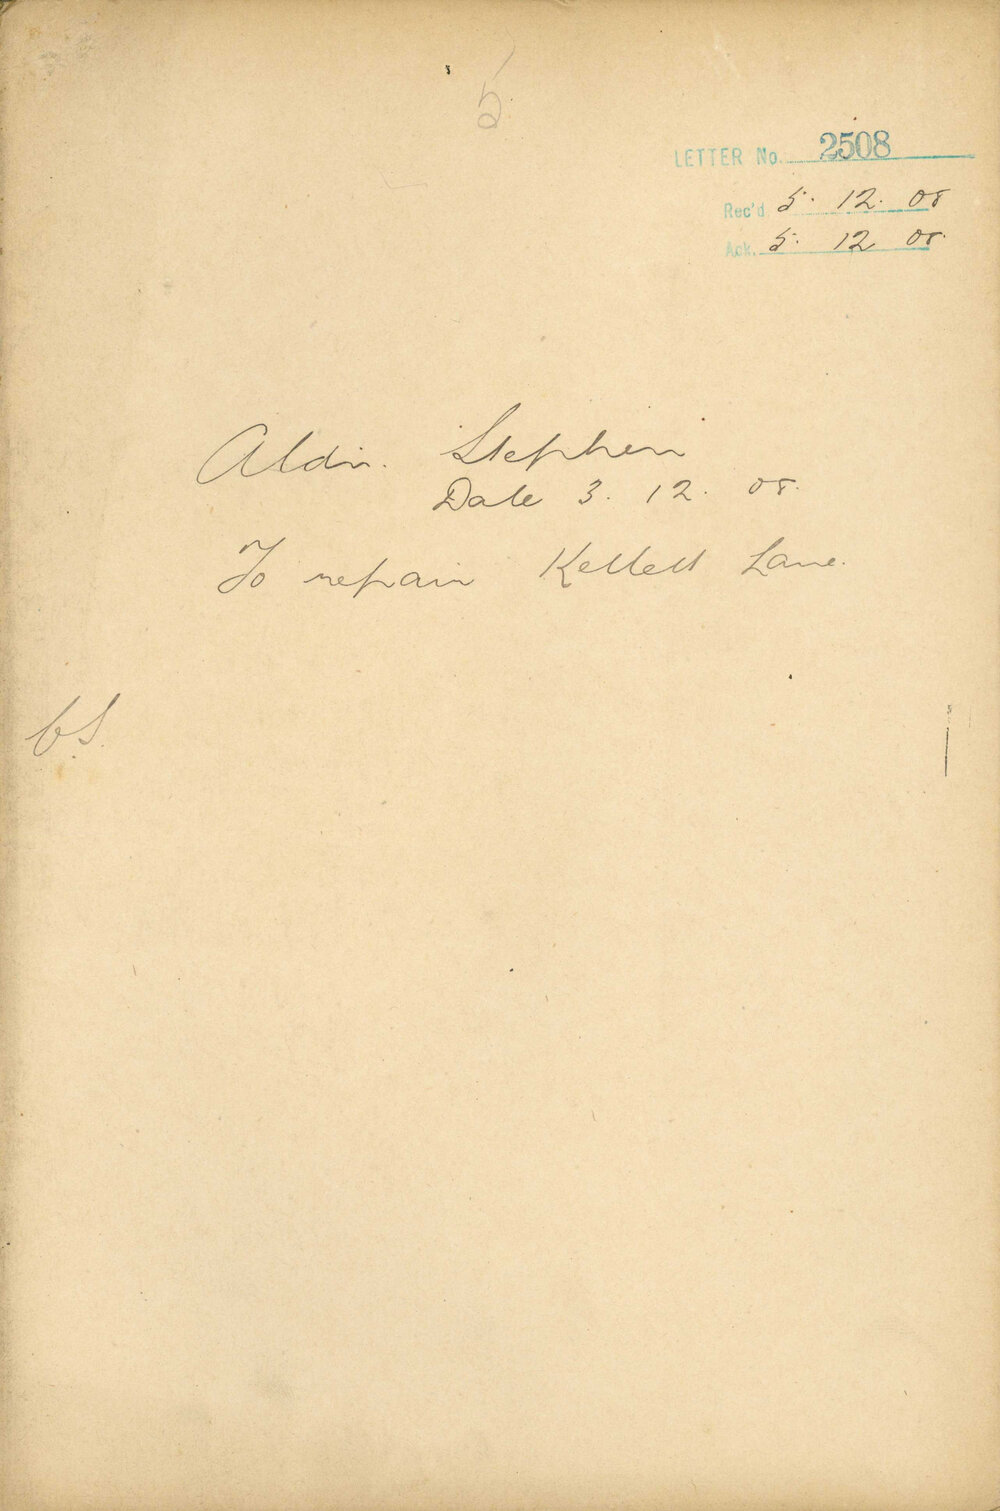 5
LETTER No. 2508
Rec'd 5. 12. 08
Ack. 5. 12 08.
Aldn. Stephen
Date 3. 12. 08.
To repair Kellett Lane.